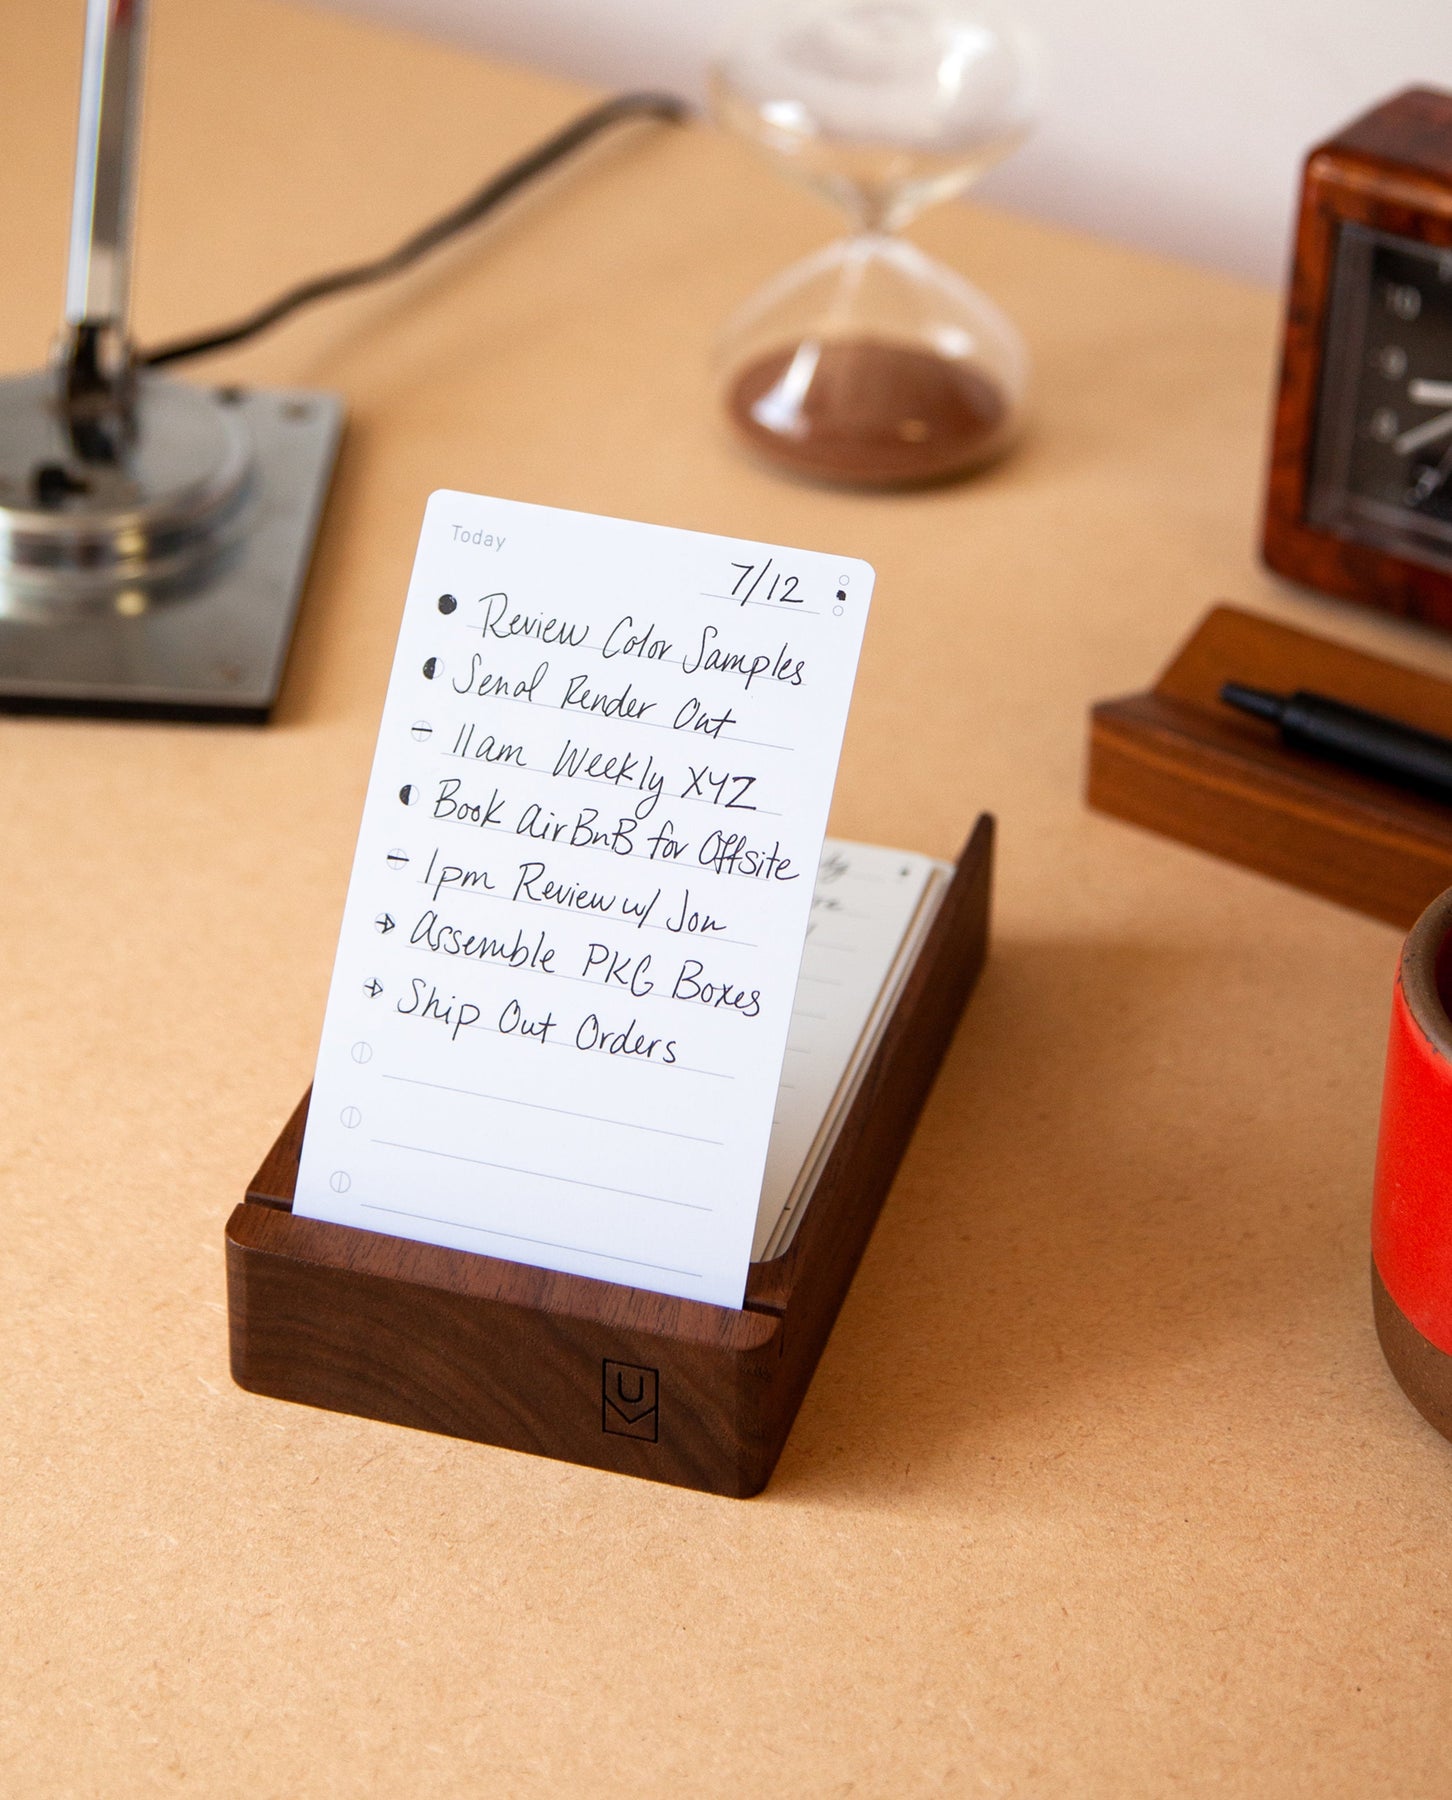 Today
7/12
Review Color Samples
Send Render Out
11am Weekly XYZ
Book AirBnB for Offsite
1pm Review w/ Jon
Assemble PKG Boxes
Ship Out Orders
U
10
9
8
7